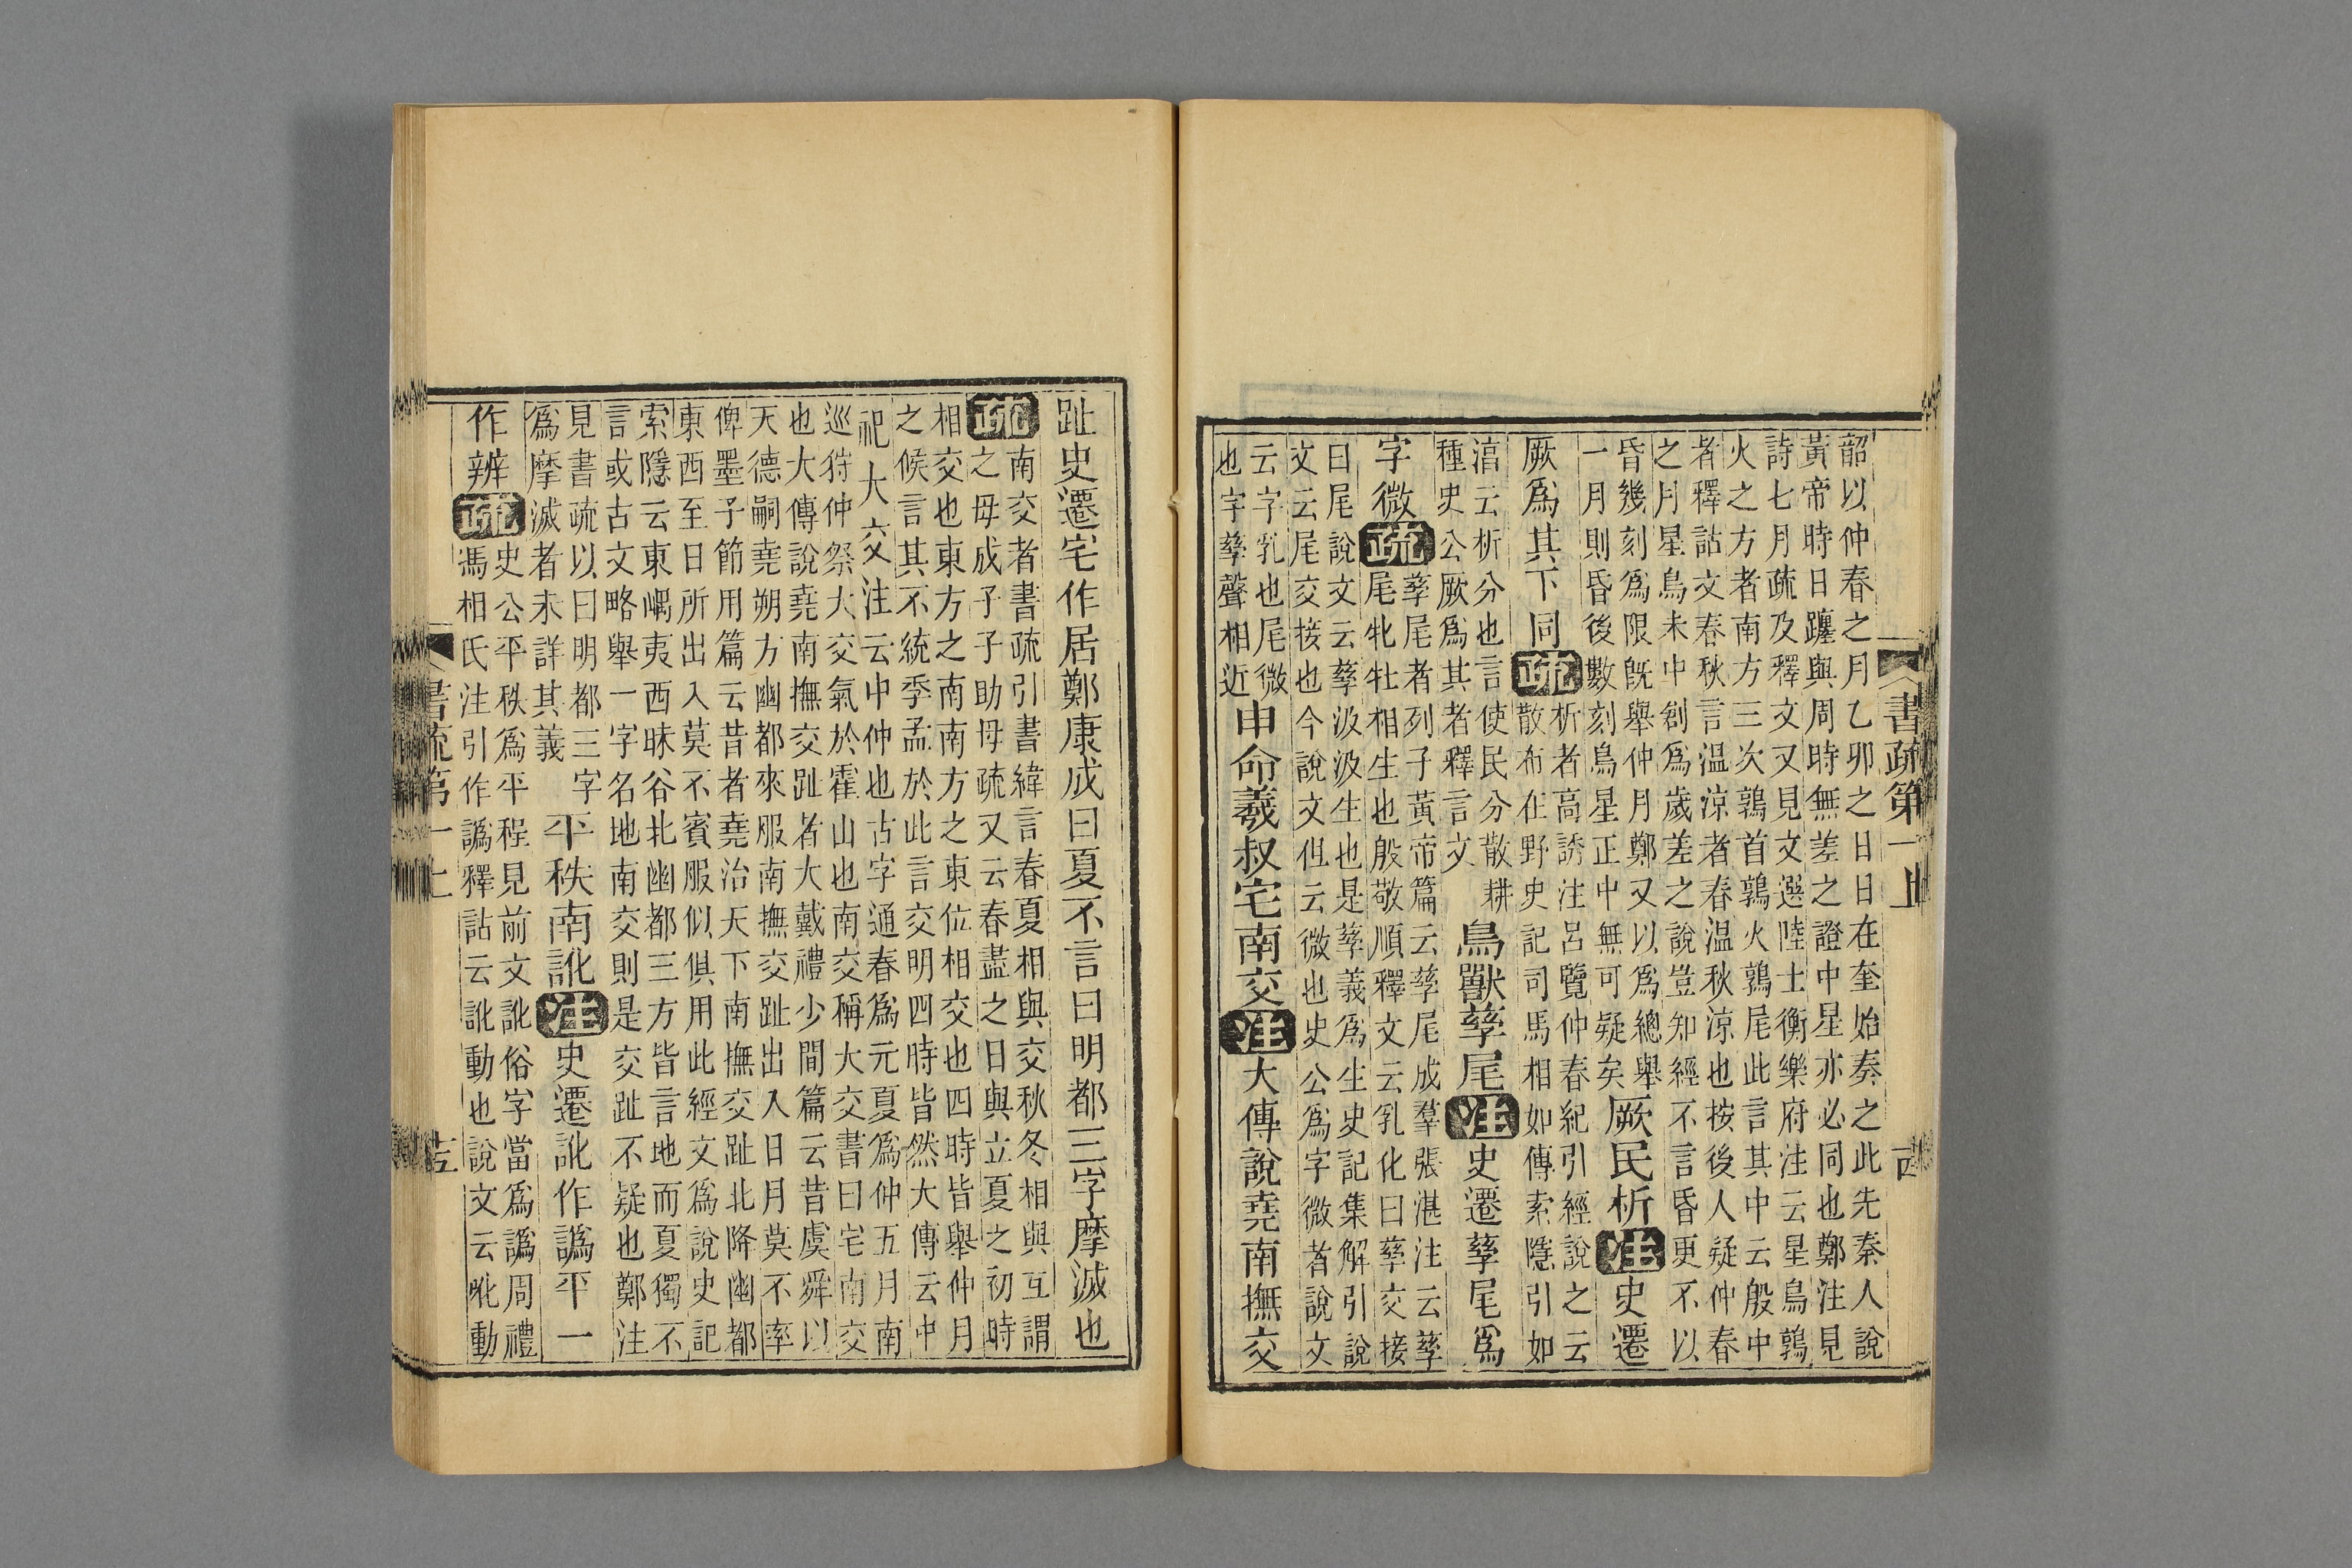 書疏第一上
韶以仲春之月乙卯之日日在奎始奏之此先秦人說
黃帝時日躔與周時無差之證中星亦必同也鄭注見
詩七月疏及釋文又見文選陸士衡樂府注云星鳥鶉
火之方者南方三次鶉首鶉火鶉尾此言其中云殷中
者釋詁文春秋言温涼者春温秋涼也按後人疑仲春
之月星鳥未中創爲歲差之說豈知經不言昏更不以
昏幾刻爲限旣舉仲月鄭又以爲總舉
一月則昏後數刻鳥星正中無可疑矣
厥民析注史遷
厥爲其下同疏
析者高誘注呂覽仲春紀引經說之云
散布在野史記司馬相如傳索隱引如
湻云析分也言使民分散耕
種史公厥爲其者釋言文
鳥獸孳尾注史遷孳尾爲
字微疏
孳尾者列子黃帝篇云孳尾成羣張湛注云孳
尾牝牡相生也殷敬順釋文云乳化曰孳交接
曰尾說文云孳汲汲生也是孳義爲生史記集解引說
文云尾交接也今說文但云微也史公爲字微者說文
云字乳也尾微
也字孳聲相近
申命羲叔宅南交注大傳說堯南撫交
趾史遷宅作居鄭康成曰夏不言曰明都三字摩滅也
疏
南交者書疏引書緯言春夏相與交秋冬相與互謂
之母成子子助母疏又云春盡之日與立夏之初時
相交也東方之南南方之東位相交也四時皆舉仲月
之候言其不統季孟於此言交明四時皆然大傳云中
祀大交注云中仲也古字通春爲元夏爲仲五月南
巡狩仲祭大交氣於霍山也南交稱大交書曰宅南交
也大傳說堯南撫交趾者大戴禮少閒篇云昔虞舜以
天德嗣堯朔方幽都來服南撫交趾出入日月莫不率
俾墨子節用篇云昔者堯治天下南撫交趾北降幽都
東西至日所出入莫不賓服似俱用此經文爲說史記
索隱云東嵎夷西昧谷北幽都三方皆言地而夏獨不
言或古文略舉一字名地南交則是交趾不疑也鄭注
見書疏以曰明都三字
爲摩滅者未詳其義
平秩南訛注史遷訛作譌平一
作辨疏
史公平秩爲平程見前文訛俗字當爲譌周禮
馮相氏注引作譌釋詁云訛動也說文云吪動
書疏第一上